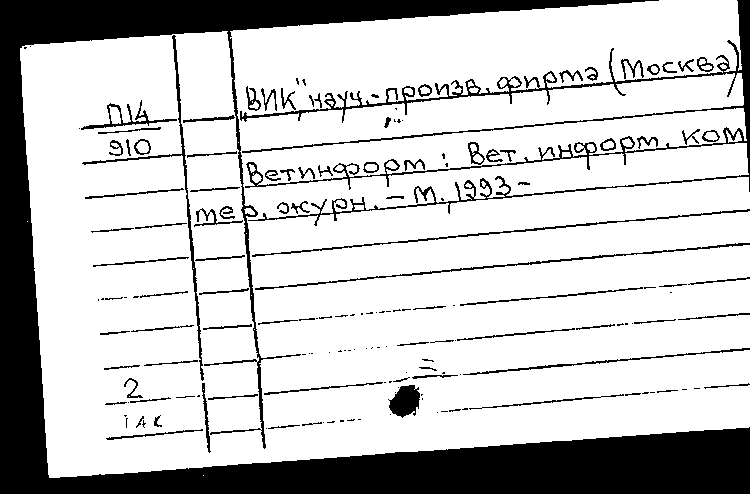 П14
910
„ВИК" науч.-произв. фирма (Москва)
Ветинформ : Вет. информ. ком
мер. журн. – М., 1993 –
2